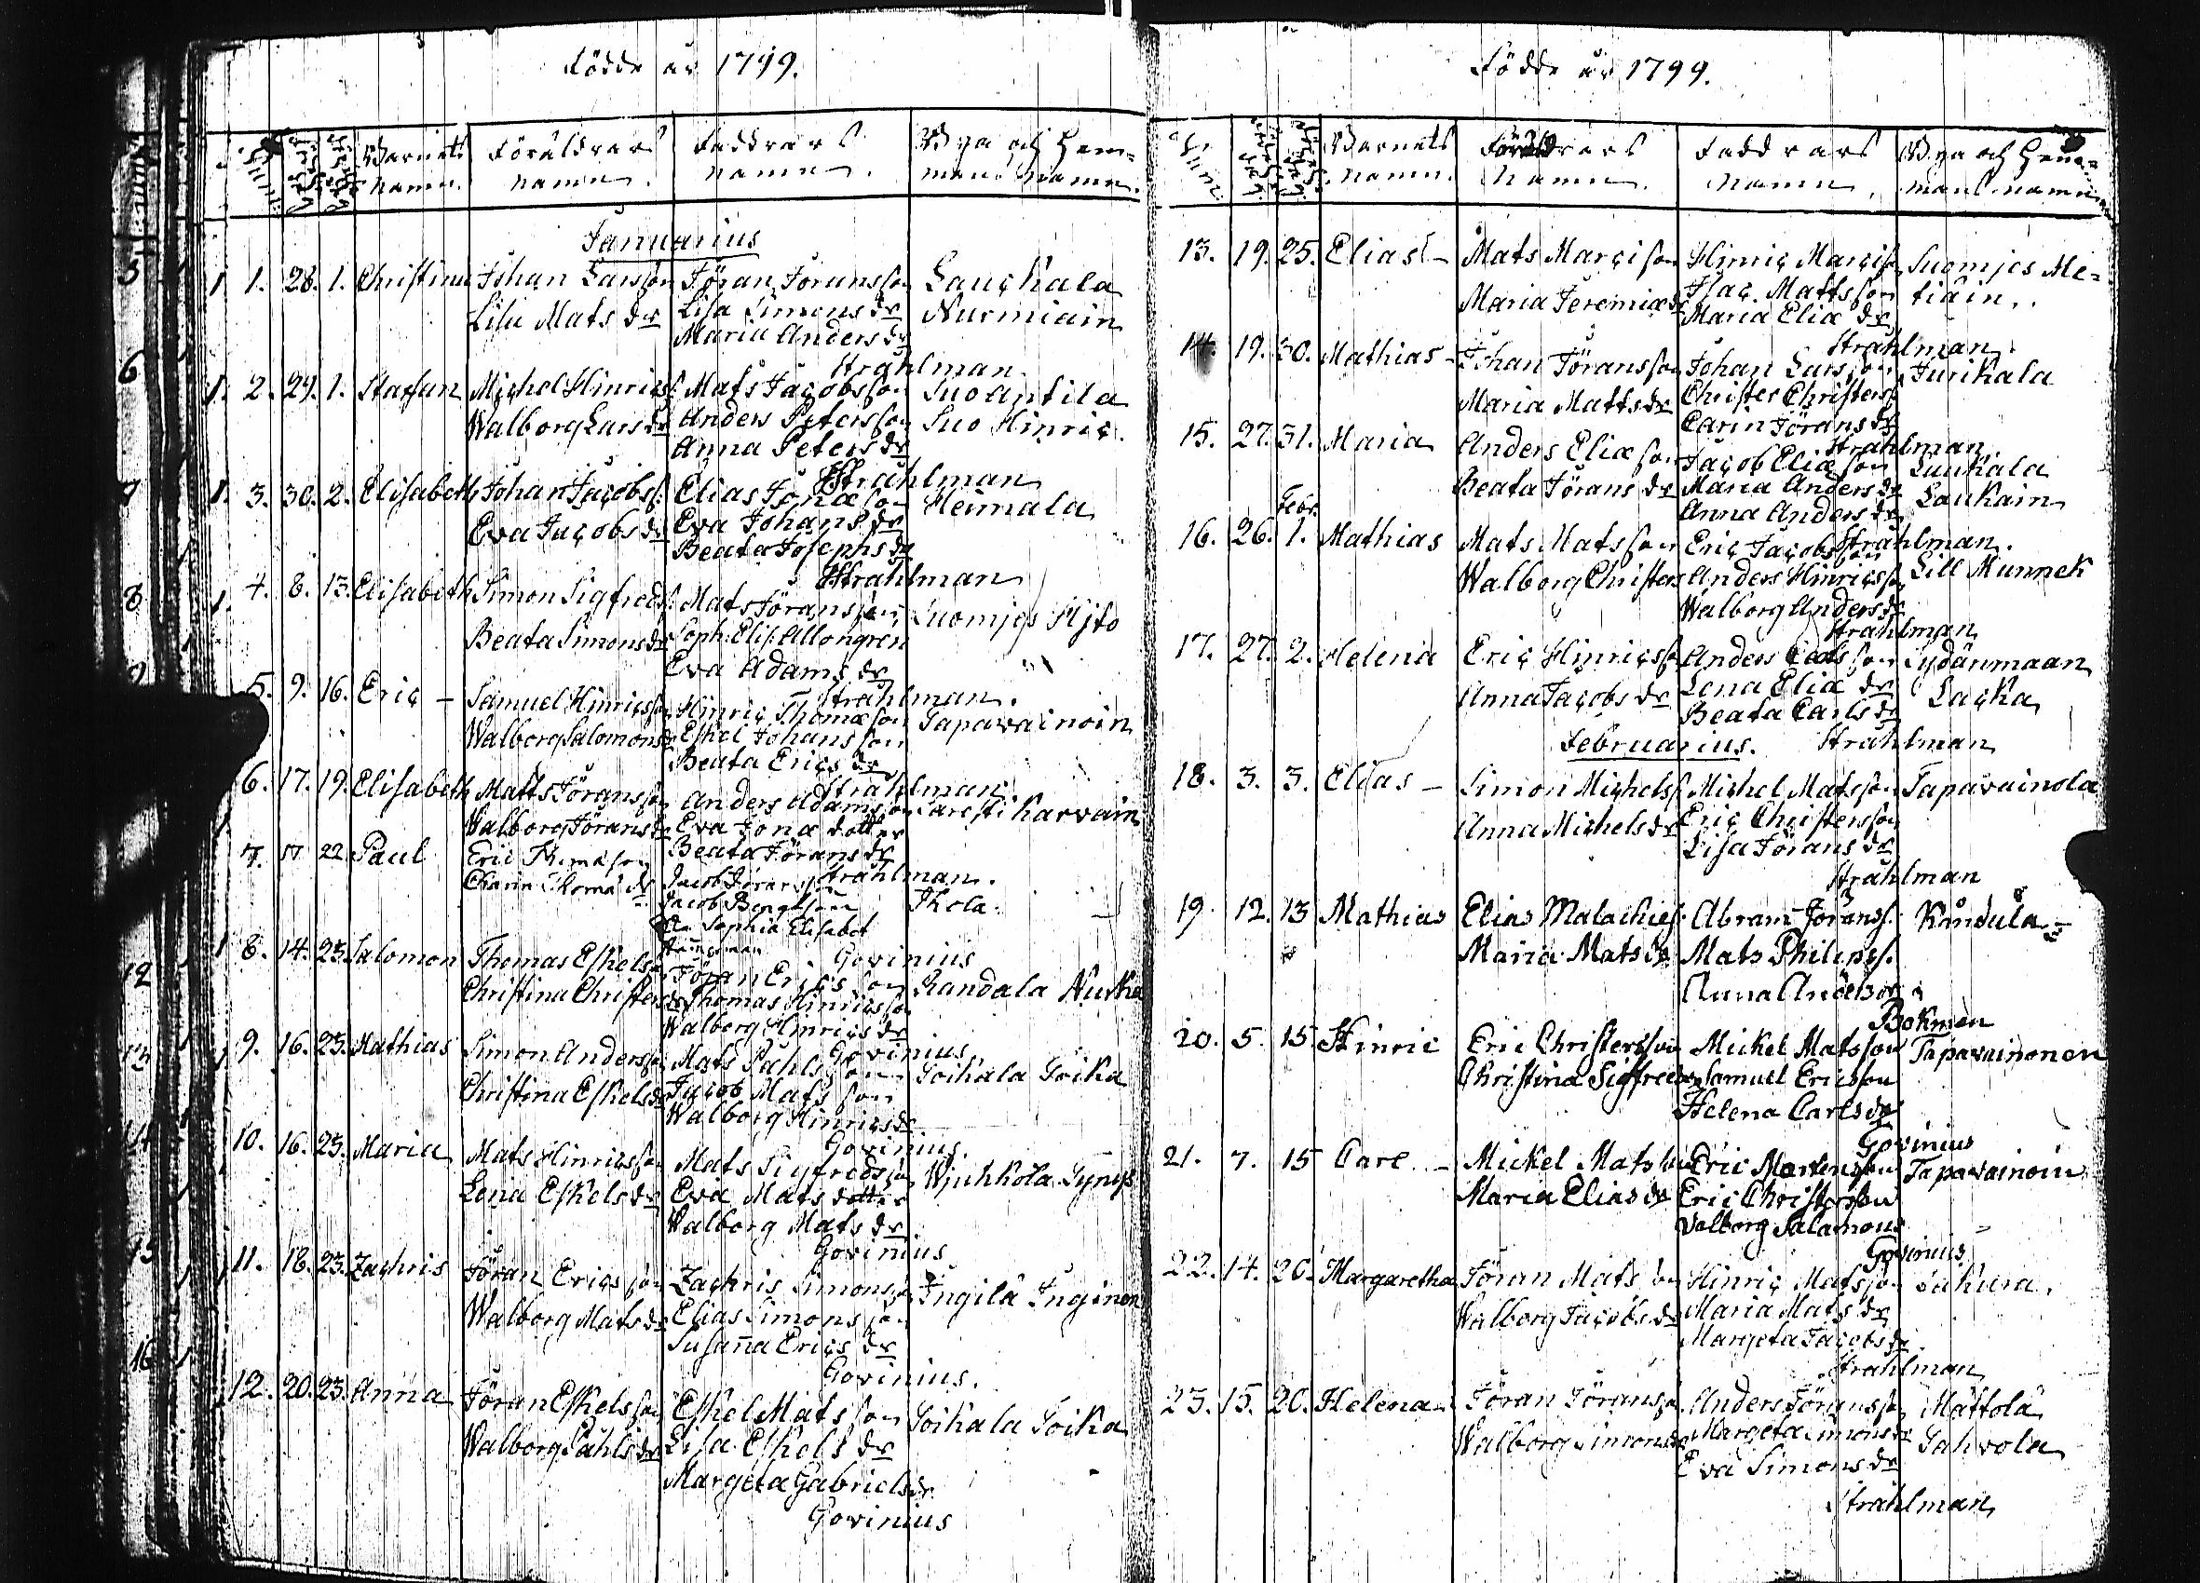 Födde år 1799.
Num: Barnets namn. Föräldrars namn. Faddrars namn. Bya och Hemmans namn.
Januarius
1. 28. 1. Christina Johan Larsson Jöran Jöransson Lauckala
Lisa Mats dr Lisa Simons dr Nurmiain
Maria Anders dr
Strahlman
2. 29. 1. Staffan Michel Hinrics: Mats Jacobsson Suo Antila
Walborg Lars dr Anders Petersson Suo Hinric.
Anna Peters dr
Strahlman
3. 30. 2. Elisabeth Johan Jacobs: Elias Jonæ son Heimala
Eva Jacobs dr Eva Johans dr
Beata Josephs dr
Strahlman
4. 8. 13. Elisabeth Simon Sigfreds: Mats Jöransson Suomjes
Beata Simons dr Soph: Elis: Allongren
Eva Adams dr
Strahlman.
5. 9. 16. Eric – Samuel Hinricsson Hinric Thomæ son Tapavainoin
Walborg Salomons dr Eskel Johansson
Beata Erics dr
Strahlman
6. 17. 19. Elisabeth Matts Jöransson Anders Adamsson Karvain
Walborg Jörans dr Eva Jonæ dotter
Beata Jörans dr
Strahlman.
7. 17 22 Paul Eric Thomason Jacob Jöransson
Charin Thoma dr Jacob Bengtsson Ihola.
Sophia Elisabet
Govinius
8. 14. 23. Salomon Thomas Eskelson Jöran Ericsson Randala Nurka
Christina Christers dr Thomas Hinricsson
Walborg Hinrics dr
Govinius
9. 16. 23. Mathias Simon Andersson Mats Påhlsson Soikala Soika
Christina Eskels dr Jacob Matsson
Walborg Hinrics dr
Govinius.
10. 16. 23. Maria Mats Hinricsson Mats Sigfredsson
Lena Eskels dr Eva Mats dotter
Walborg Mats dr
Govinius
11. 18. 23. Zachris Jöran Ericsson Zachris Simonsson Ingilä Inginen
Walborg Mats dr Elias Simonsson
Susanna Erics dr
Govinius.
12. 20. 23. Anna Jöran Eskelsson Eskel Matsson Soikala Soika
Walborg Påhls dr Lisa Eskels dr
Margeta Gabriels dr
Govinius
Födde år 1799.
Num: Barnets namn. Föräldrars namn. Faddrars namn. Bya och Hemmans namn
13. 19. 25. Elias – Mats Marcison Hinric Marcison Suomjes Me-
Maria Jeremiæ dr Isac Mattsson tiäin.
Maria Eliæ dr
Strahlman.
14. 19. 30. Mathias – Johan Jöransson Johan Larsson Jurikala
Maria Matts dr Christer Christers:
Carin Jörans dr
Strahlman
15. 27. 31. Maria Anders Eliæ son Jacob Eliæ son Laukala
Beata Jörans dr Maria Anders dr Laukain
Anna Anders dr
Strahlman.
Febr.
16. 26. 1. Mathias Mats Matsson Eric Jacobsson Lill Munnek
Walborg Christers Anders Hinricsson
Walborg Anders dr
Strahlman
17. 27. 2. Helena Eric Hinricsson Anders Carlsson Sydänmaan
Anna Jacobs dr Lena Eliæ dr Lacka
Beata Carls dr
Strahlman
Februarius.
18. 3. 3. Elias – Simon Michels: Michel Matsson Tapavainola
Anna Michels dr Eric Christersson
Lisa Jörans dr
Strahlman
19. 12. 13 Mathias Elias Malachies: Abram Jörans: Kandula
Maria Mats dr Mats Philips:
Anna Anders dr
Bokmen
20. 5. 15 Hinric Eric Christersson Mickel Matsson Tapavainonen
Christina Sigfreds Samuel Ericsson
Helena Carls dr
Govinius
21. 7. 15 Carl – Mickel Matsson Eric Mortensson Tapavainoin
Maria Elias dr Eric Christersson
Valborg Salamons
Govinius
22. 14. 20. Margaretha Jöran Matsson Hinric Matsson
Walborg Jacobs dr Maria Mats dr
Margeta Jacobs dr
Strahlman
23. 15. 20. Helena Jöran Jöransson Anders Jöransson Mättölä
Walborg Simons dr Margeta Simons dr Sahvola
Eva Simons dr
Strahlman